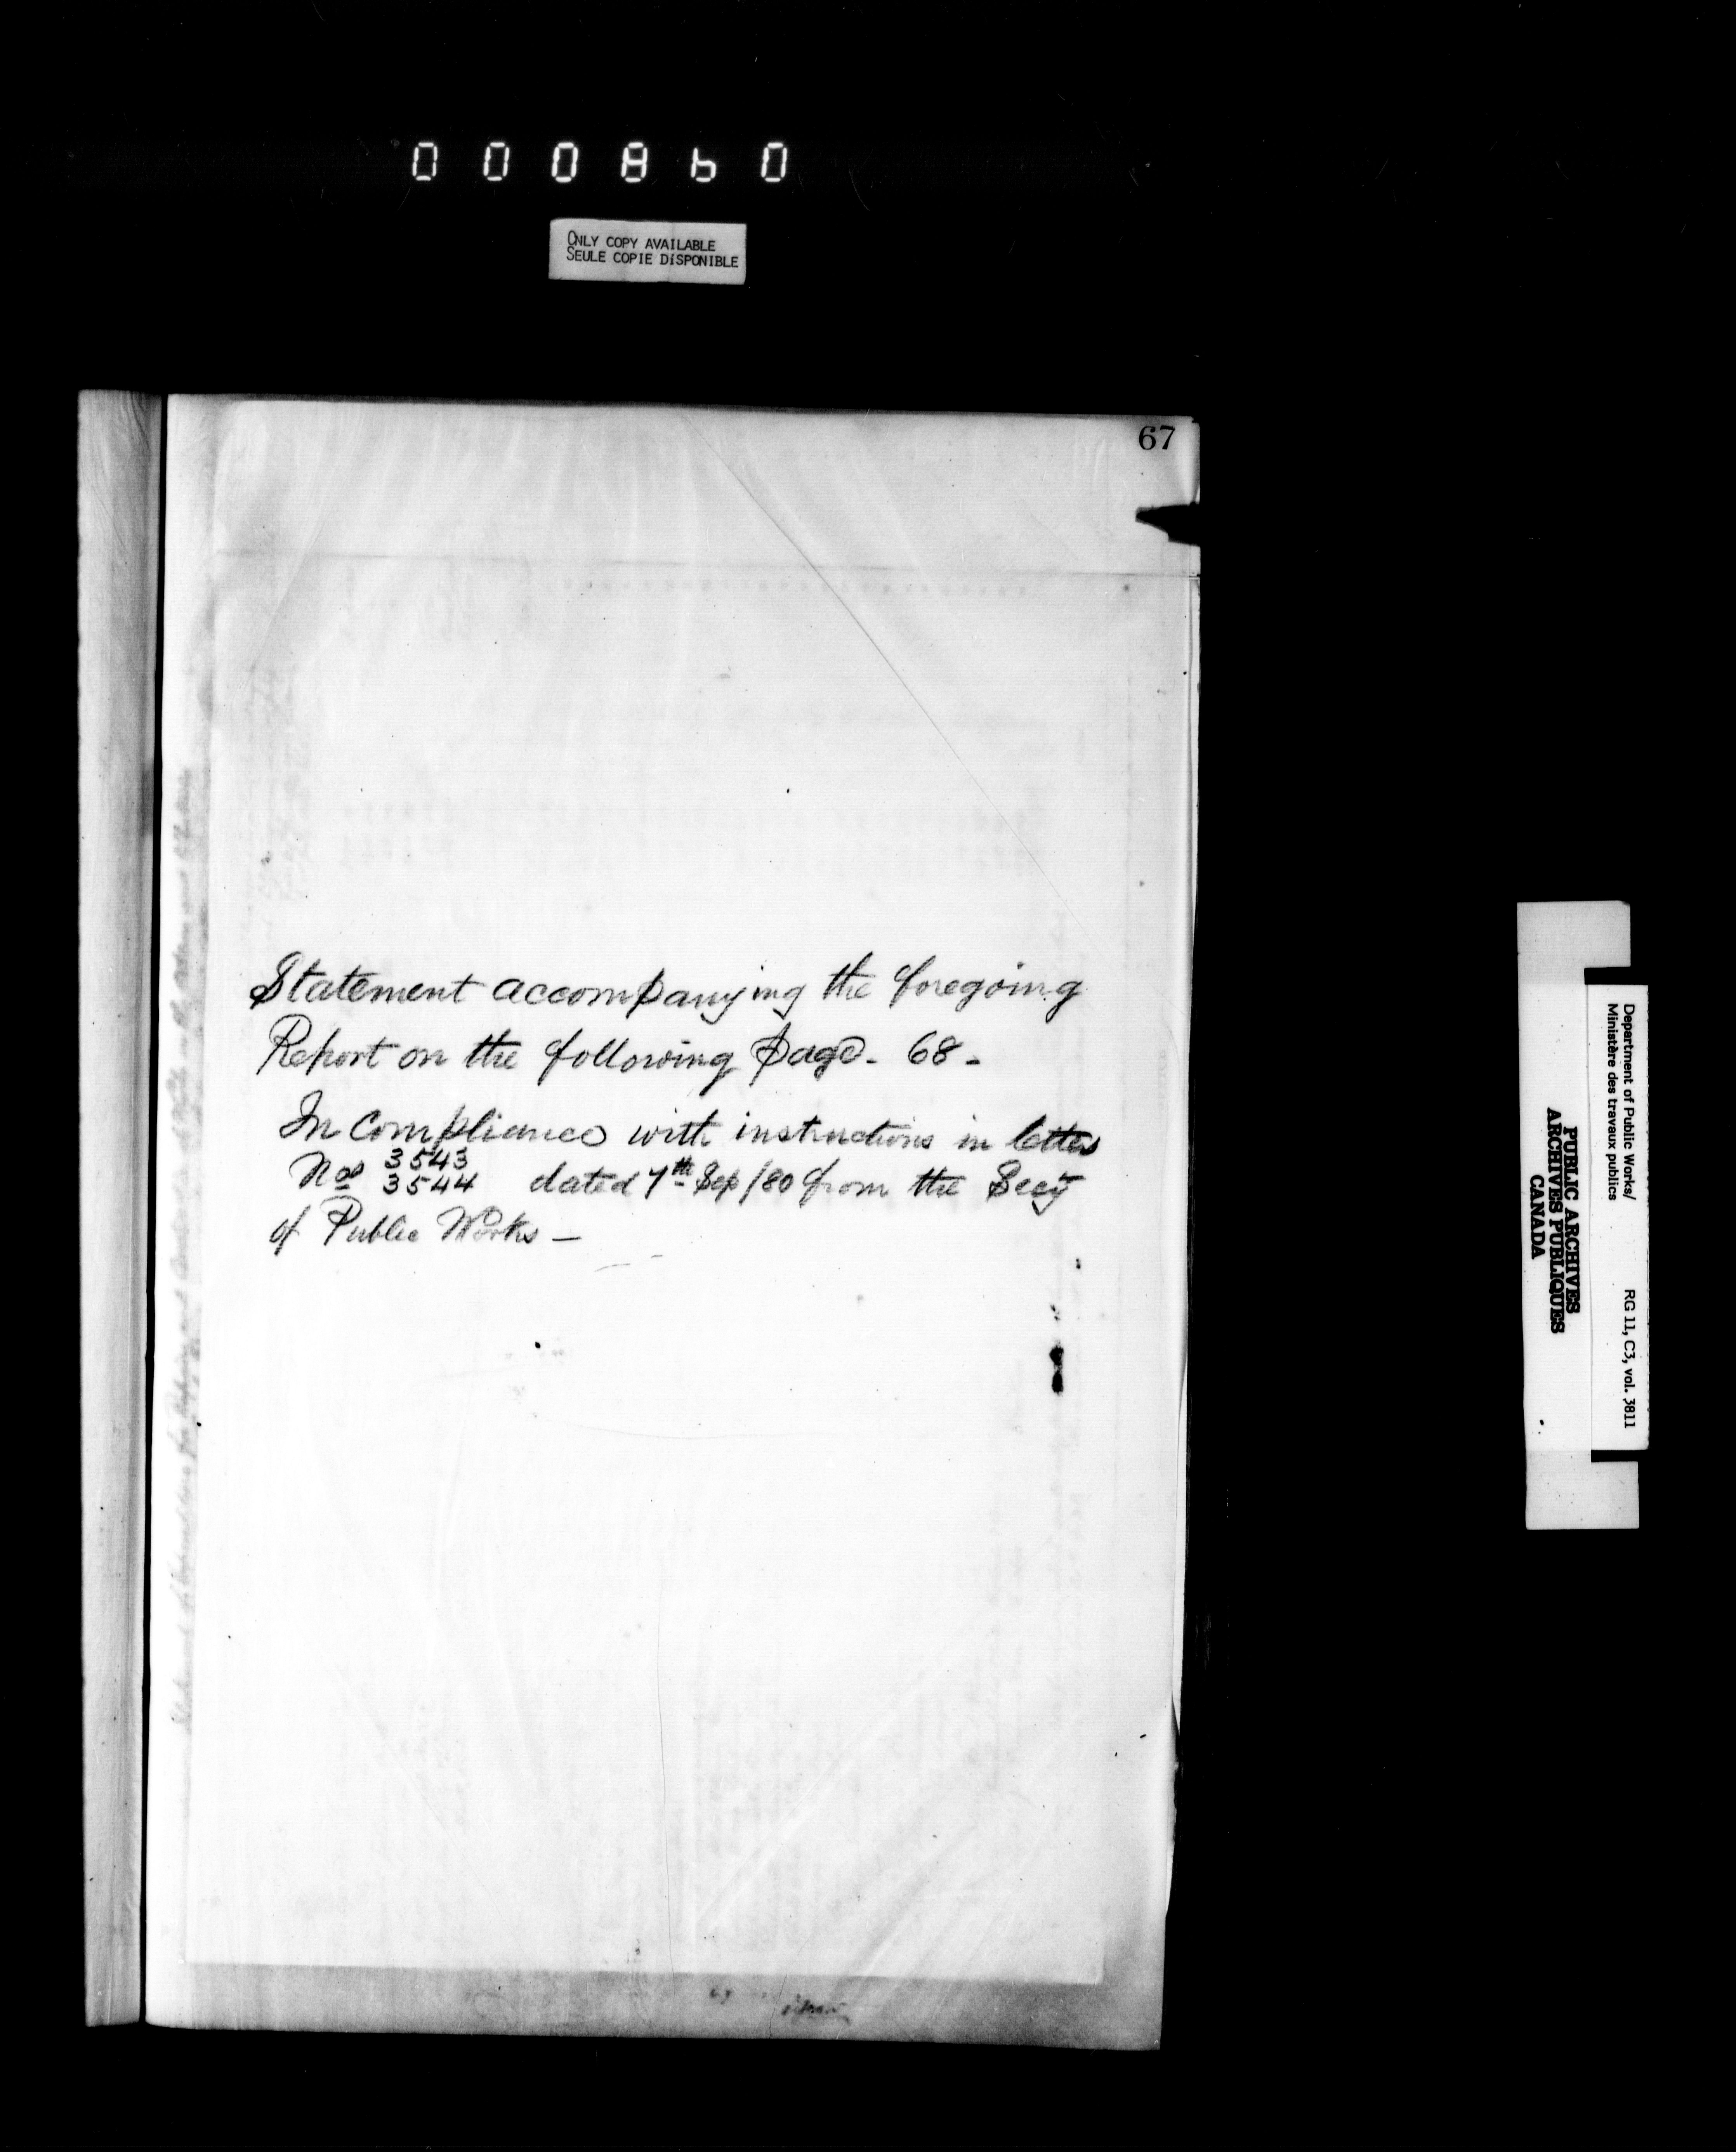 000860
ONLY COPY AVAILABLE
SEULE COPIE DISPONIBLE
67
Statement accompanying the foregoing
Report on the following page - 68 -
In Compliance with instructions in letters
Nos 3543
3544 dated 7th Sep/80 from the Secy
of Public Works —
Department of Public Works/
Ministère des travaux publics
RG 11, C3, vol. 3811
PUBLIC ARCHIVES
ARCHIVES PUBLIQUES
CANADA